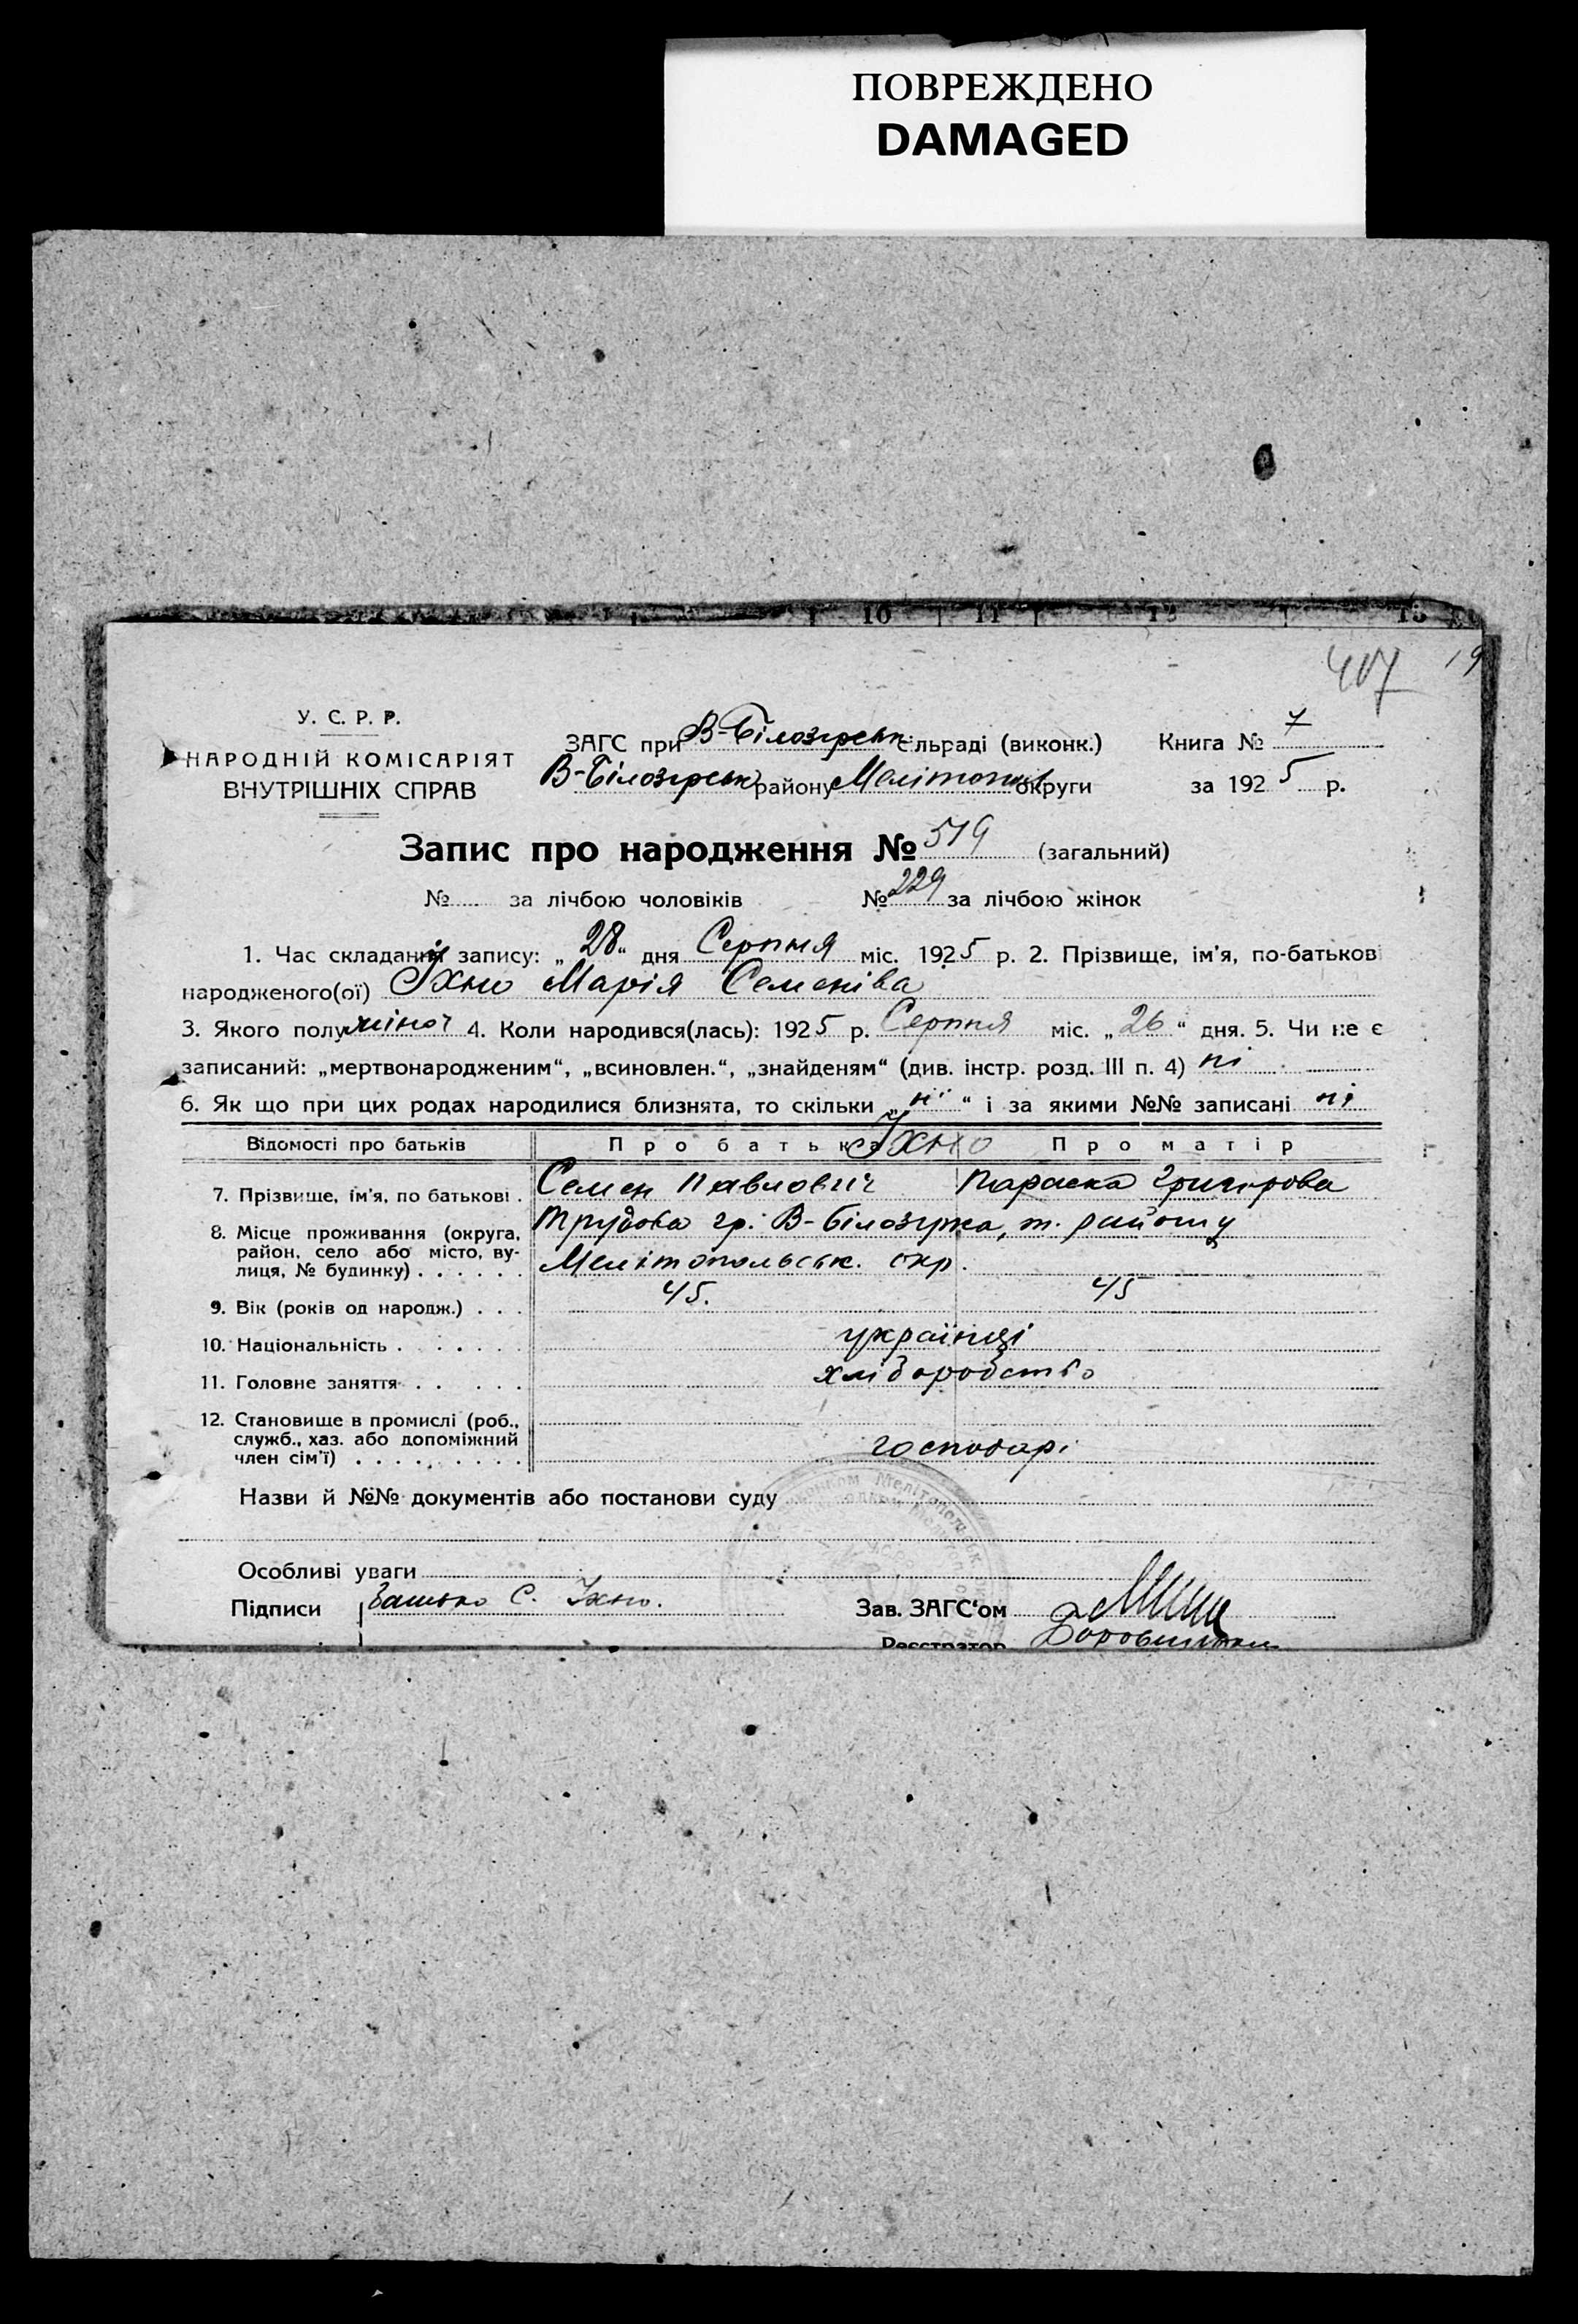 ПОВРЕЖДЕНО
DAMAGED
10 11 12 13
407 19
У. С. Р. Р.
НАРОДНІЙ КОМІСАРІЯТ
ВНУТРІШНІХ СПРАВ
ЗАГС при В-Білозірськ сільраді (виконк.) Книга № 7
В-Білозірськ району Мелітопол округи за 1925 р.
Запис про народження № 519 (загальний)
№ за лічбою чоловіків № 229 за лічбою жінок
1. Час складання запису: „28“ дня Серпня міс. 1925 р. 2. Прізвище, ім'я, по-батькові
народженого(ої) Їхно Марія Семенівa
3. Якого полу жіноч 4. Коли народився(лась): 1925 р. Серпня міс. „26“ дня. 5. Чи не є
записаний: „мертвонародженим“, „всиновлен.“, „знайденям“ (див. інстр. розд. III п. 4) ні
6. Як що при цих родах народилися близнята, то скільки „ні“ і за якими №№ записані ні
Відомості про батьків Про батька Їхно Про матір
7. Прізвище, ім'я, по батькові . Семен Павлович Параска Григорова
8. Місце проживання (округа, Трудова гр. В-Білозірка, т. району
район, село або місто, ву-
лиця, № будинку) . . . . . . Мелітопольськ. окр.
9. Вік (років од народж.) . . . 45. 45
10. Національність . . . . . . . українці
11. Головне заняття . . . . . хліборобство
12. Становище в промислі (роб.,
служб., хаз. або допоміжний
член сім'ї) . . . . . . . . . господарі
Назви й №№ документів або постанови суду
Особливі уваги
Підписи Батько С. Їхно. Зав. ЗАГС'ом
Реєстратор